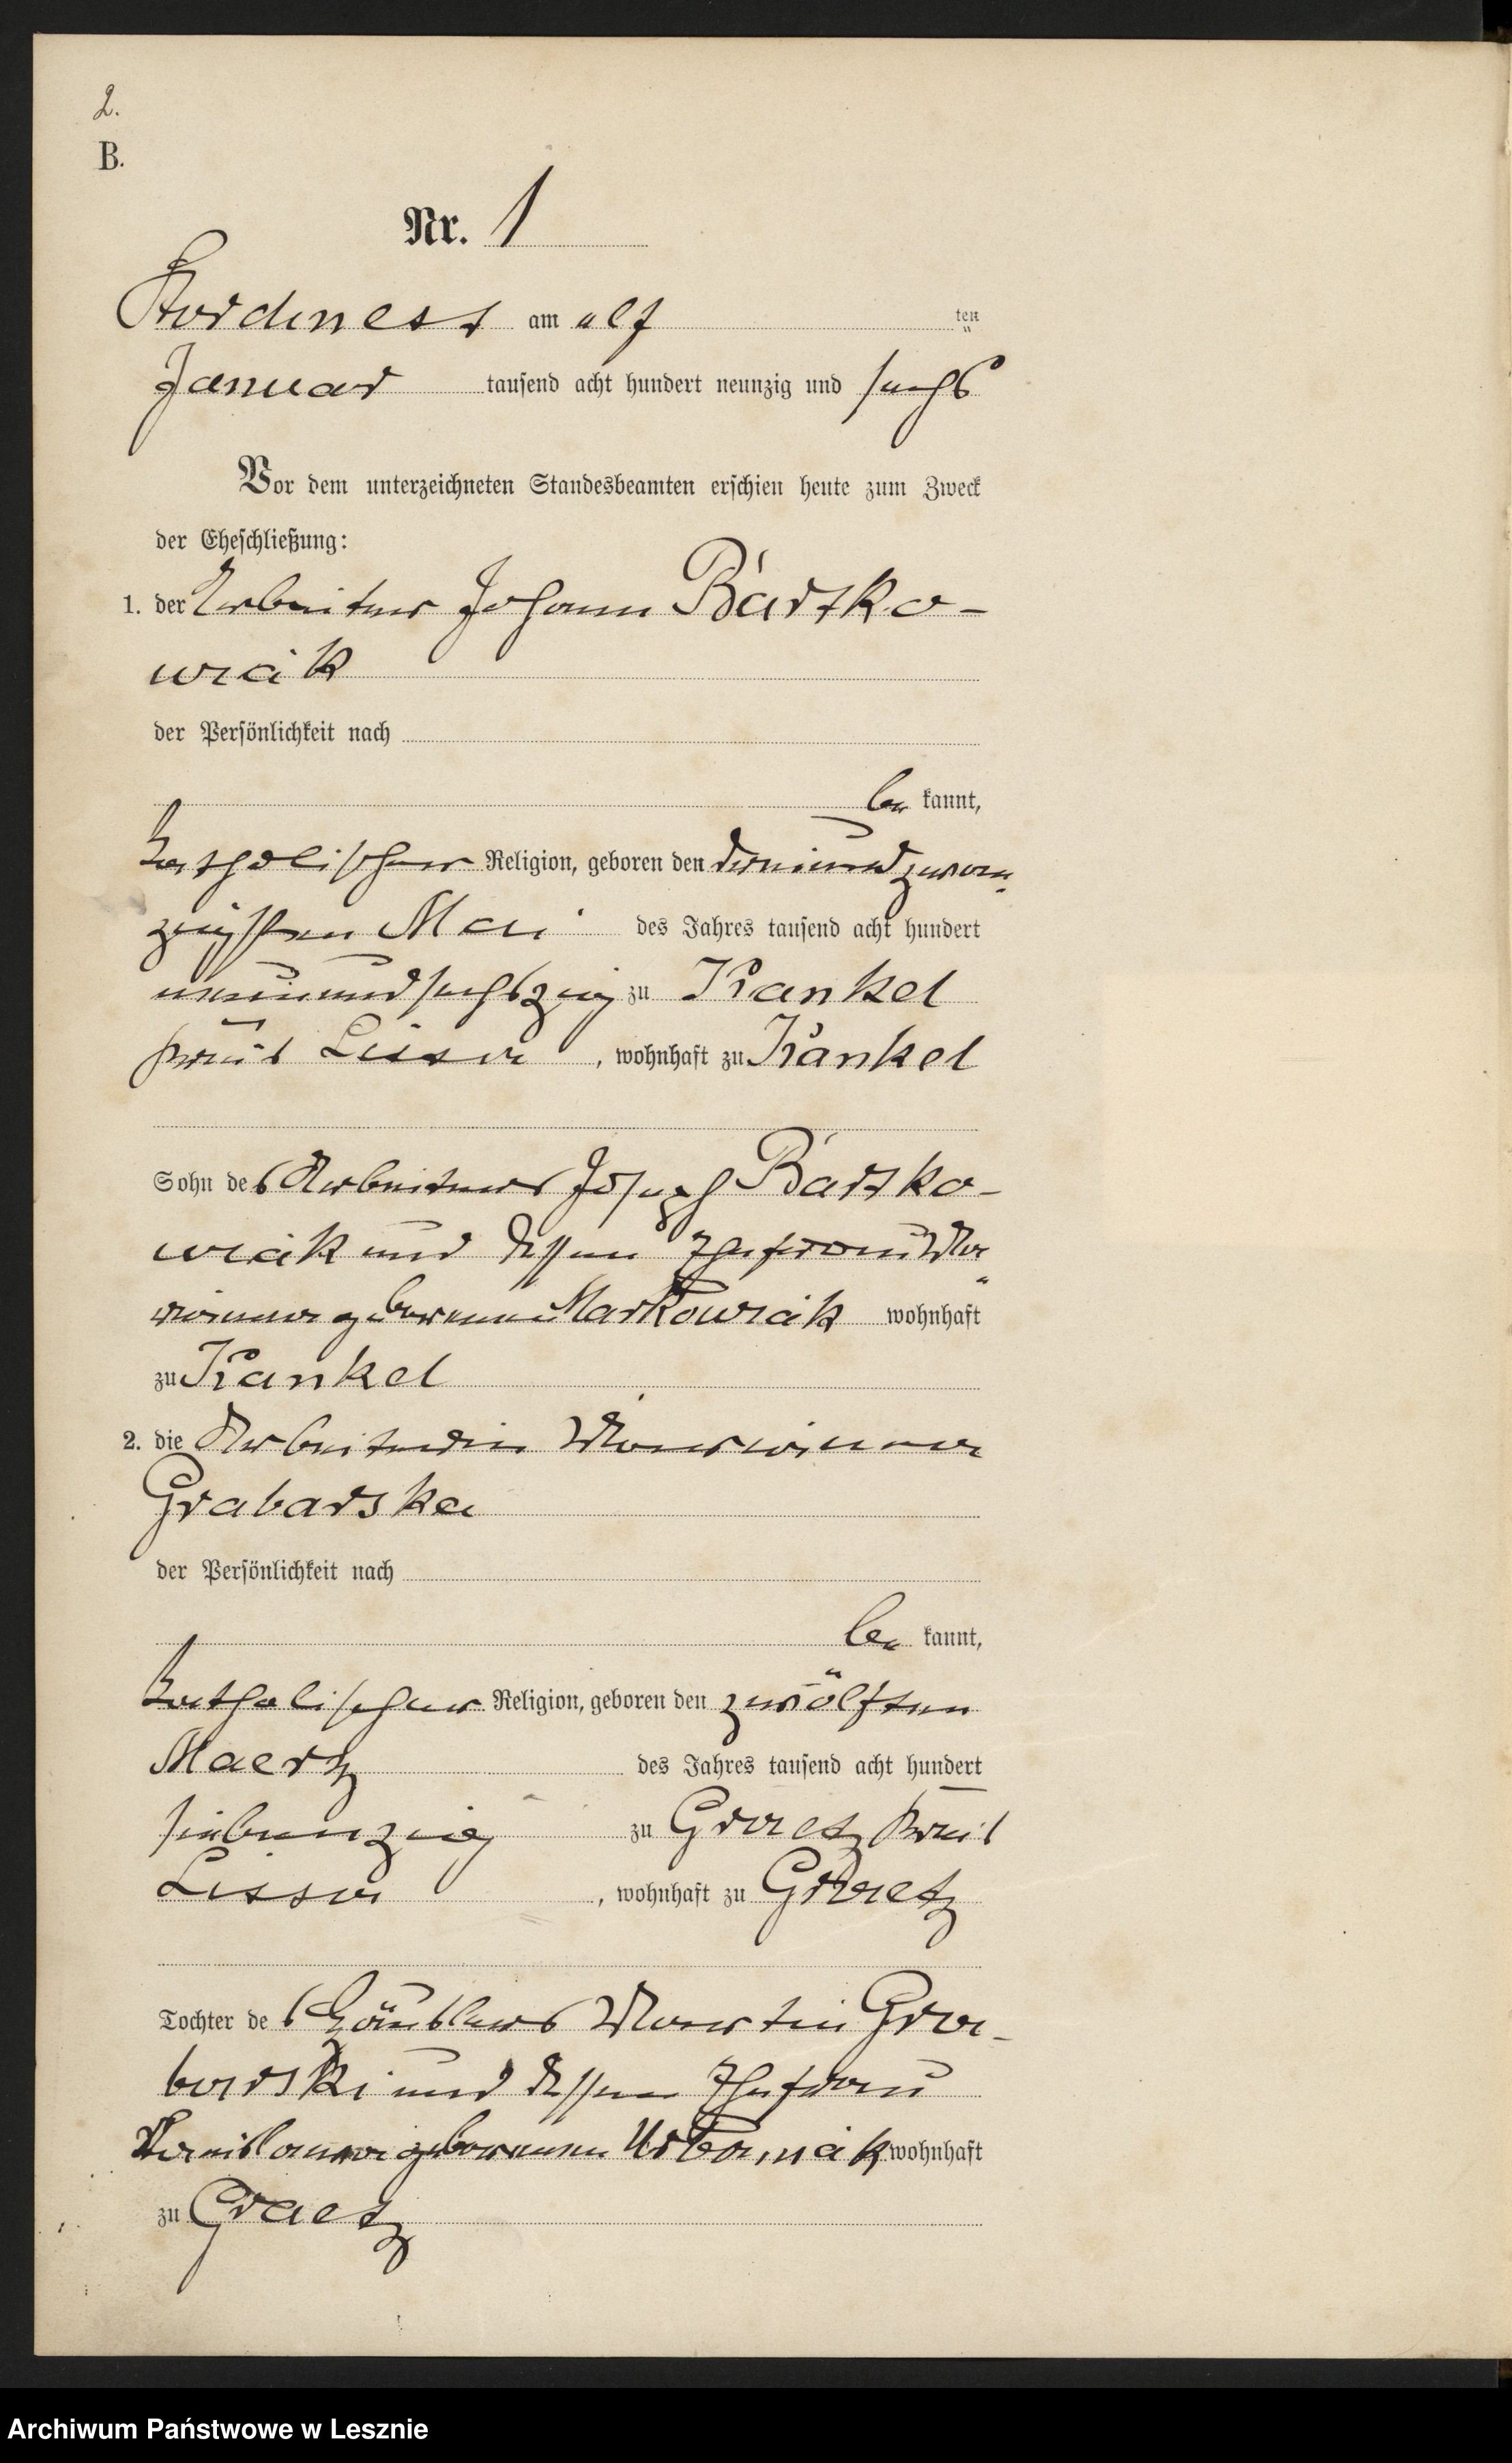 2.
B.
Nr. 1
Stordinest am elf ten
Januar tausend acht hundert neunzig und sechs
Vor dem unterzeichneten Standesbeamten erschien heute zum Zweck
der Eheschließung:
1. der Arbeiter Johann Bartko-
wiak
der Persönlichkeit nach
be kannt,
katholischer Religion, geboren den dreiundzwan-
zigsten Mai des Jahres tausend acht hundert
neunundsechszig zu Kankel
Kreis Lissa, wohnhaft zu Kankel
Sohn des Arbeiters Joseph Bartko-
wiak und dessen Ehefrau Ma-
rianna geborenen Markowiak wohnhaft
zu Kankel
2. die Arbeiterin Marianna
Grabarska
der Persönlichkeit nach
be kannt,
katholischer Religion, geboren den zwölften
Maertz des Jahres tausend acht hundert
siebenzig zu Graetz Kreis
Lissa, wohnhaft zu Graetz
Tochter des Häuslers Martin Gra-
barski und dessen Ehefrau
Stanislawa geborenen Urbaniak wohnhaft
zu Graetz
Archiwum Państwowe w Lesznie